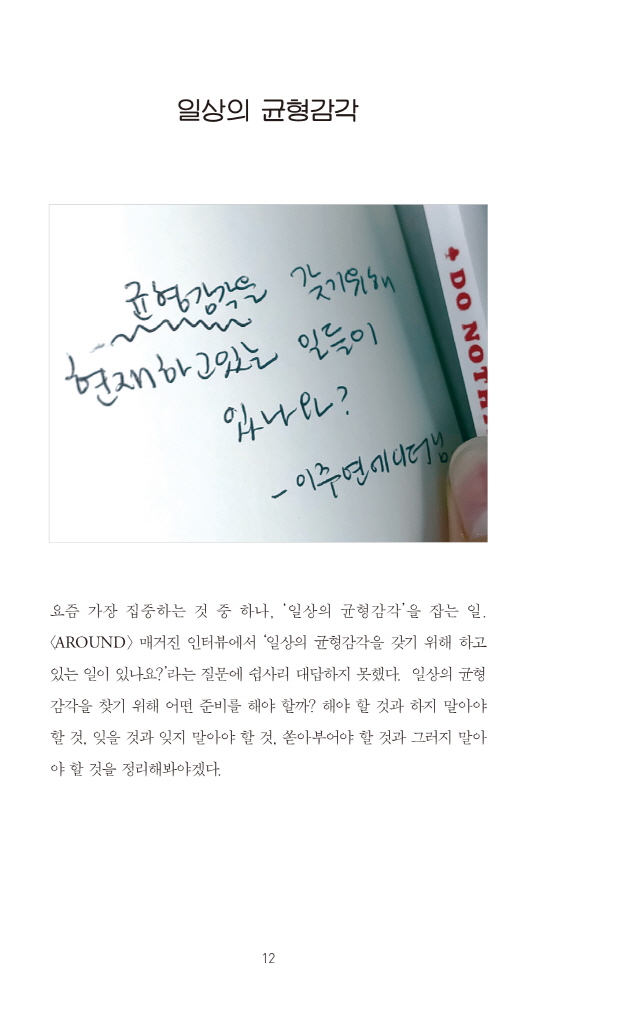 일상의 균형감각
균형감각을 갖기위해
현재하고있는 일들이
있나요?
- 이주연에디터님
♣ DO NOTH
요즘 가장 집중하는 것 중 하나, ‘일상의 균형감각’을 잡는 일.
〈AROUND〉 매거진 인터뷰에서 ‘일상의 균형감각을 갖기 위해 하고
있는 일이 있나요?’라는 질문에 쉽사리 대답하지 못했다. 일상의 균형
감각을 찾기 위해 어떤 준비를 해야 할까? 해야 할 것과 하지 말아야
할 것, 잊을 것과 잊지 말아야 할 것, 쏟아부어야 할 것과 그러지 말아
야 할 것을 정리해봐야겠다.
12